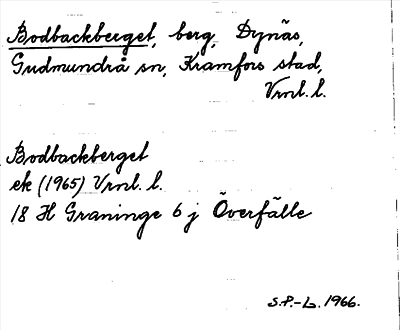 Bodbackberget, berg, Dynäs,
Gudmundrå sn, Kramfors stad,
Vrnl. l.
Bodbackberget
ek (1965) Vrnl. l.
18 H Graninge 6 j Överfälle
S.P.-L. 1966.